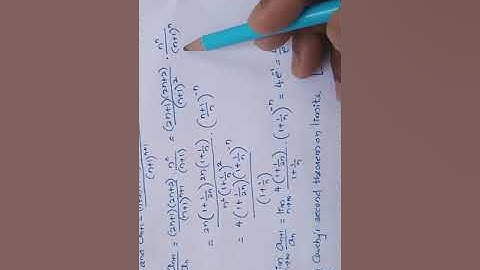 and a_{n+1} =
(n+1)^{n+1}
\frac{a_{n+1}}{a_n} = \frac{(2n+1)(2n+2)}{(n+1)^{n+1}} \cdot \frac{n^n}{(n+1)} = \frac{(2n+1)(2n+2)}{(n+1)^2} \cdot \frac{n^n}{(n+1)^n}
= \frac{2n(1+\frac{1}{2n}) 2n(1+\frac{1}{n})}{n^2(1+\frac{1}{n})^2} \cdot (\frac{n+1}{n})^{-n}
= \frac{4(1+\frac{1}{2n})(1+\frac{1}{n})^{-n}}{(1+\frac{1}{n})}
\lim_{n→∞} \frac{a_{n+1}}{a_n} = \lim_{n→∞} \frac{4(1+\frac{1}{2n})}{1+\frac{1}{n}} \cdot (1+\frac{1}{n})^{-n} = 4e^{-1} = \frac{4}{e}
Cauchy's second theorem on limits,